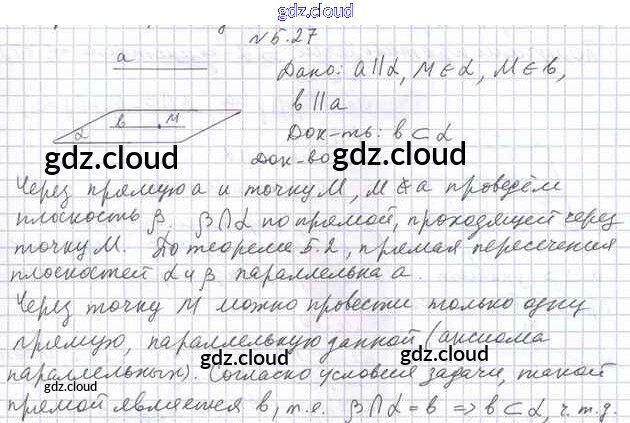 gdz.cloud
N 5.27
a
Дано: a || α, M ∈ α, M ∈ b,
b || a
α b M
Док-ть: b ⊂ α
gdz.cloud
gdz.cloud
Док-во
Через прямую a и точку M, M ∉ a проведём
плоскость β. β ∩ α по прямой, проходящей через
точку M. По теореме 5.2, прямая пересечения
плоскостей α и β параллельна a.
Через точку M можно провести только одну
прямую, параллельную данной (аксиома
gdz.cloud
gdz.cloud
параллельных). Согласно условия задачи, такой
прямой является b, т.е. β ∩ α = b => b ⊂ α, ч.т.д.
gdz.cloud